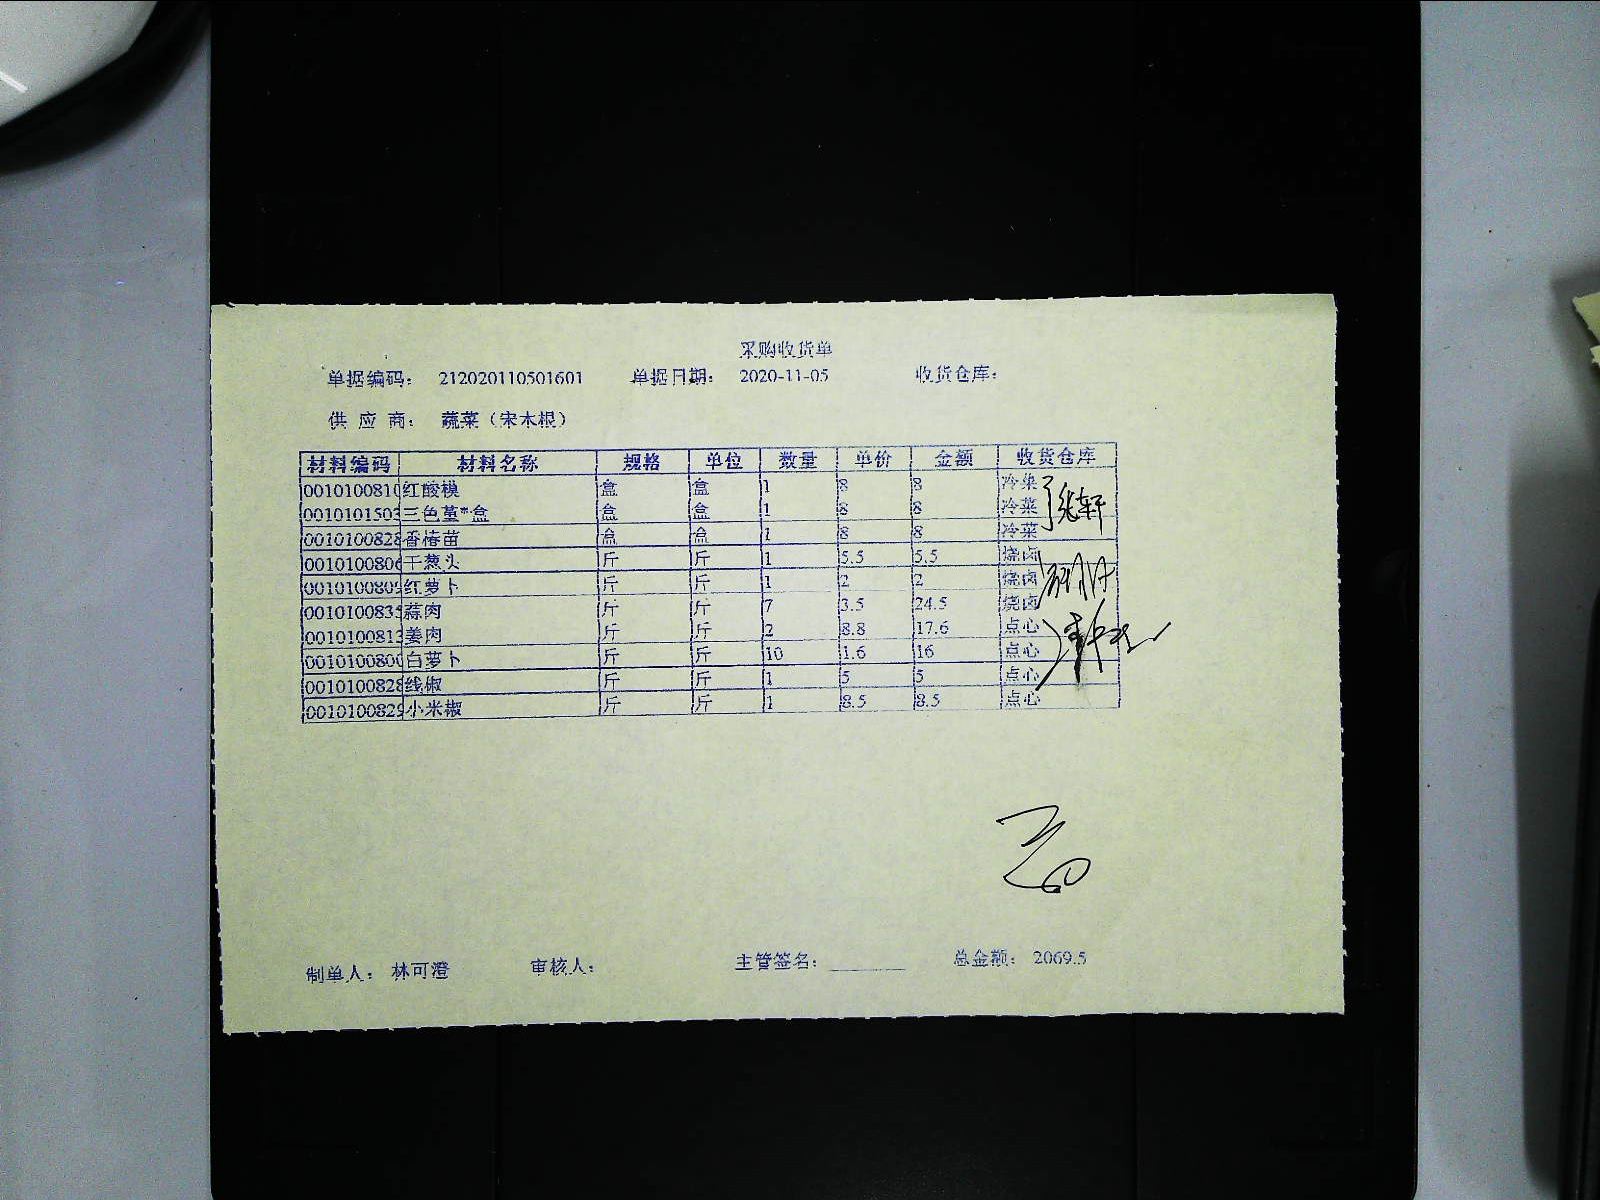 采购收货单
单据编码: 212020110501601 单据日期: 2020-11-05 收货仓库:
供 应 商: 蔬菜（宋木根）
材料编码 材料名称 规格 单位 数量 单价 金额 收货仓库
0010100810 红酸模 盒 盒 1 8 8 冷菜
0010101503 三色堇*盒 盒 盒 1 8 8 冷菜 张轩
0010100828 香椿苗 盒 盒 1 8 8 冷菜
0010100806 干葱头 斤 斤 1 5.5 5.5 烧卤
0010100809 红萝卜 斤 斤 1 2 2 烧卤
0010100835 蒜肉 斤 斤 7 3.5 24.5 烧卤
0010100813 姜肉 斤 斤 2 8.8 17.6 点心
0010100800 白萝卜 斤 斤 10 1.6 16 点心
0010100828 线椒 斤 斤 1 5 5 点心
0010100829 小米椒 斤 斤 1 8.5 8.5 点心
制单人: 林可澄 审核人: 主管签名: 总金额: 2069.5